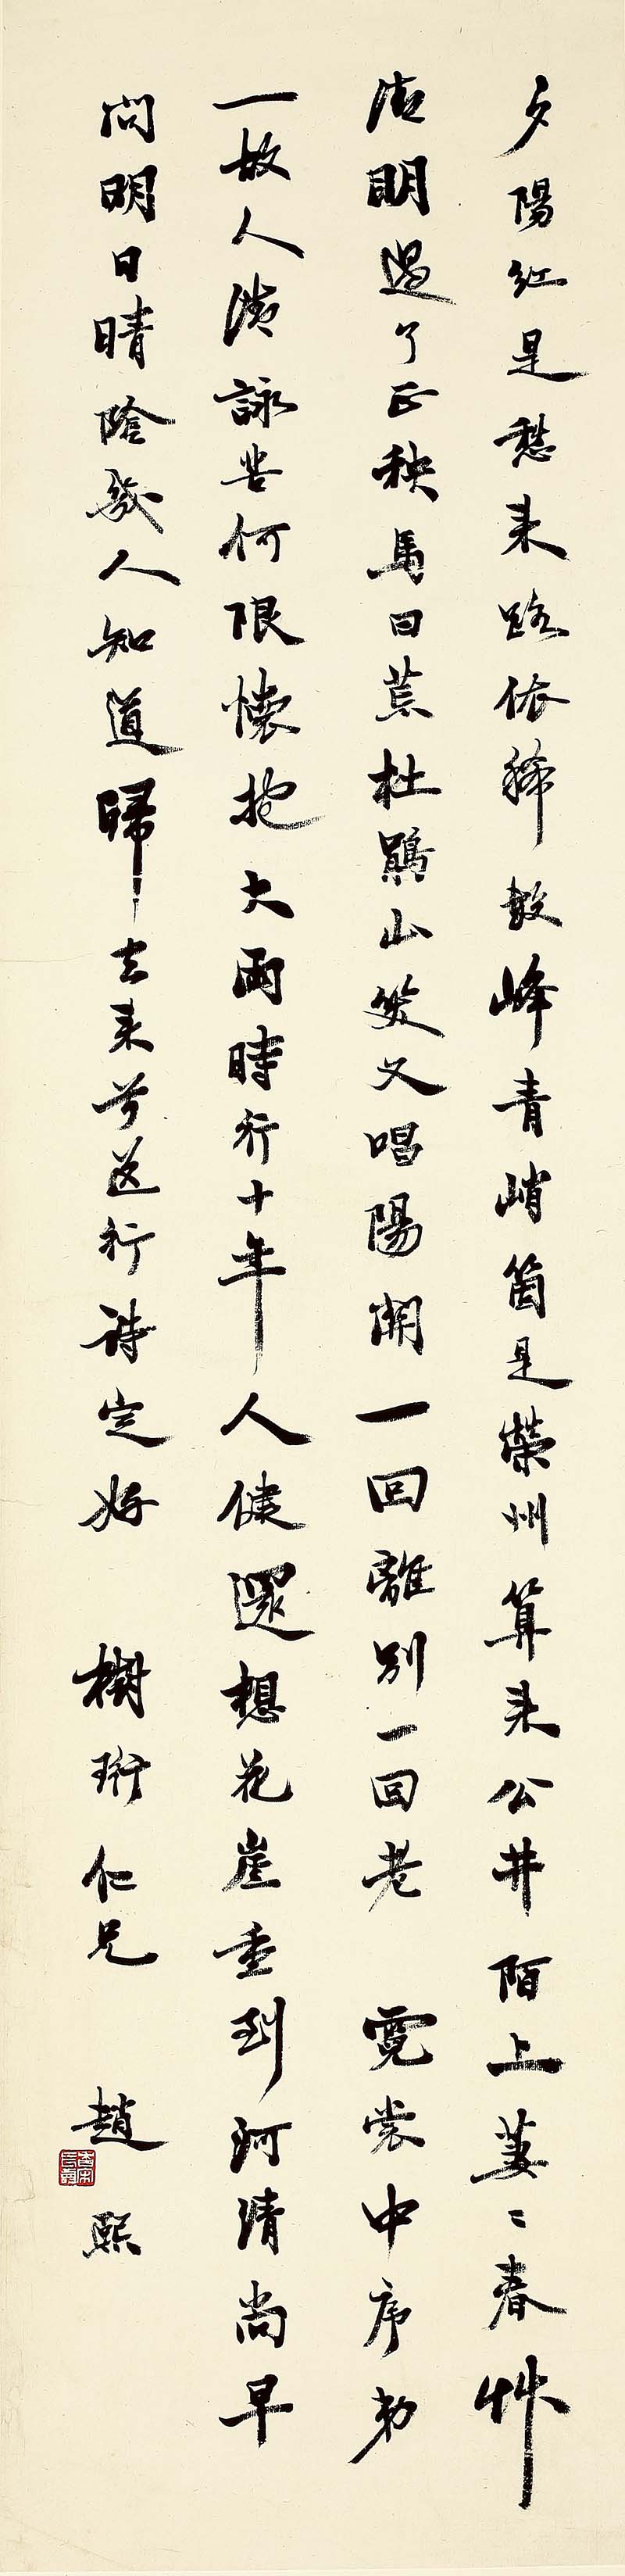 夕陽紅是愁來路依稀數峰青峭箇是榮州算來公井陌上萋〻春艸
清明過了正秧馬日荒杜鵑山笑又唱陽關一回離別一回老 霓裳中序弟
一故人詠苦何限懷抱大雨時行十年人健還想花崖重到河清尚早
問明日晴陰幾人知道歸去來兮送行詩定好 樹珩仁兄 趙熙